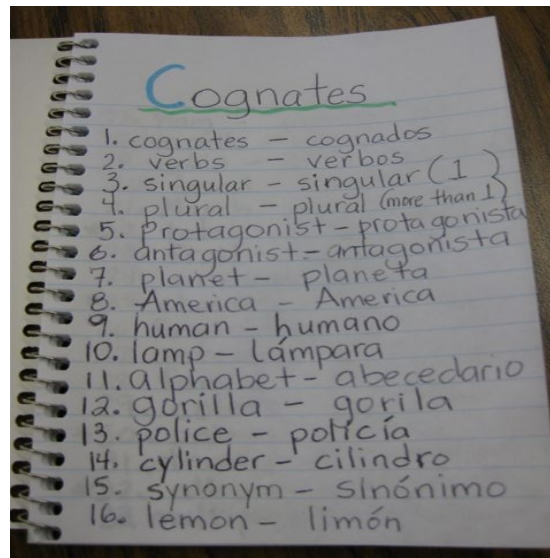 Cognates
1. cognates - cognados
2. verbs - verbos
3. singular - singular (1)
4. plural - plural (more than 1)
5. Protagonist - protagonista
6. antagonist - antagonista
7. planet - planeta
8. America - America
9. human - humano
10. lamp - lámpara
11. alphabet - abecedario
12. gorilla - gorila
13. police - policía
14. cylinder - cilindro
15. synonym - sinónimo
16. lemon - limón